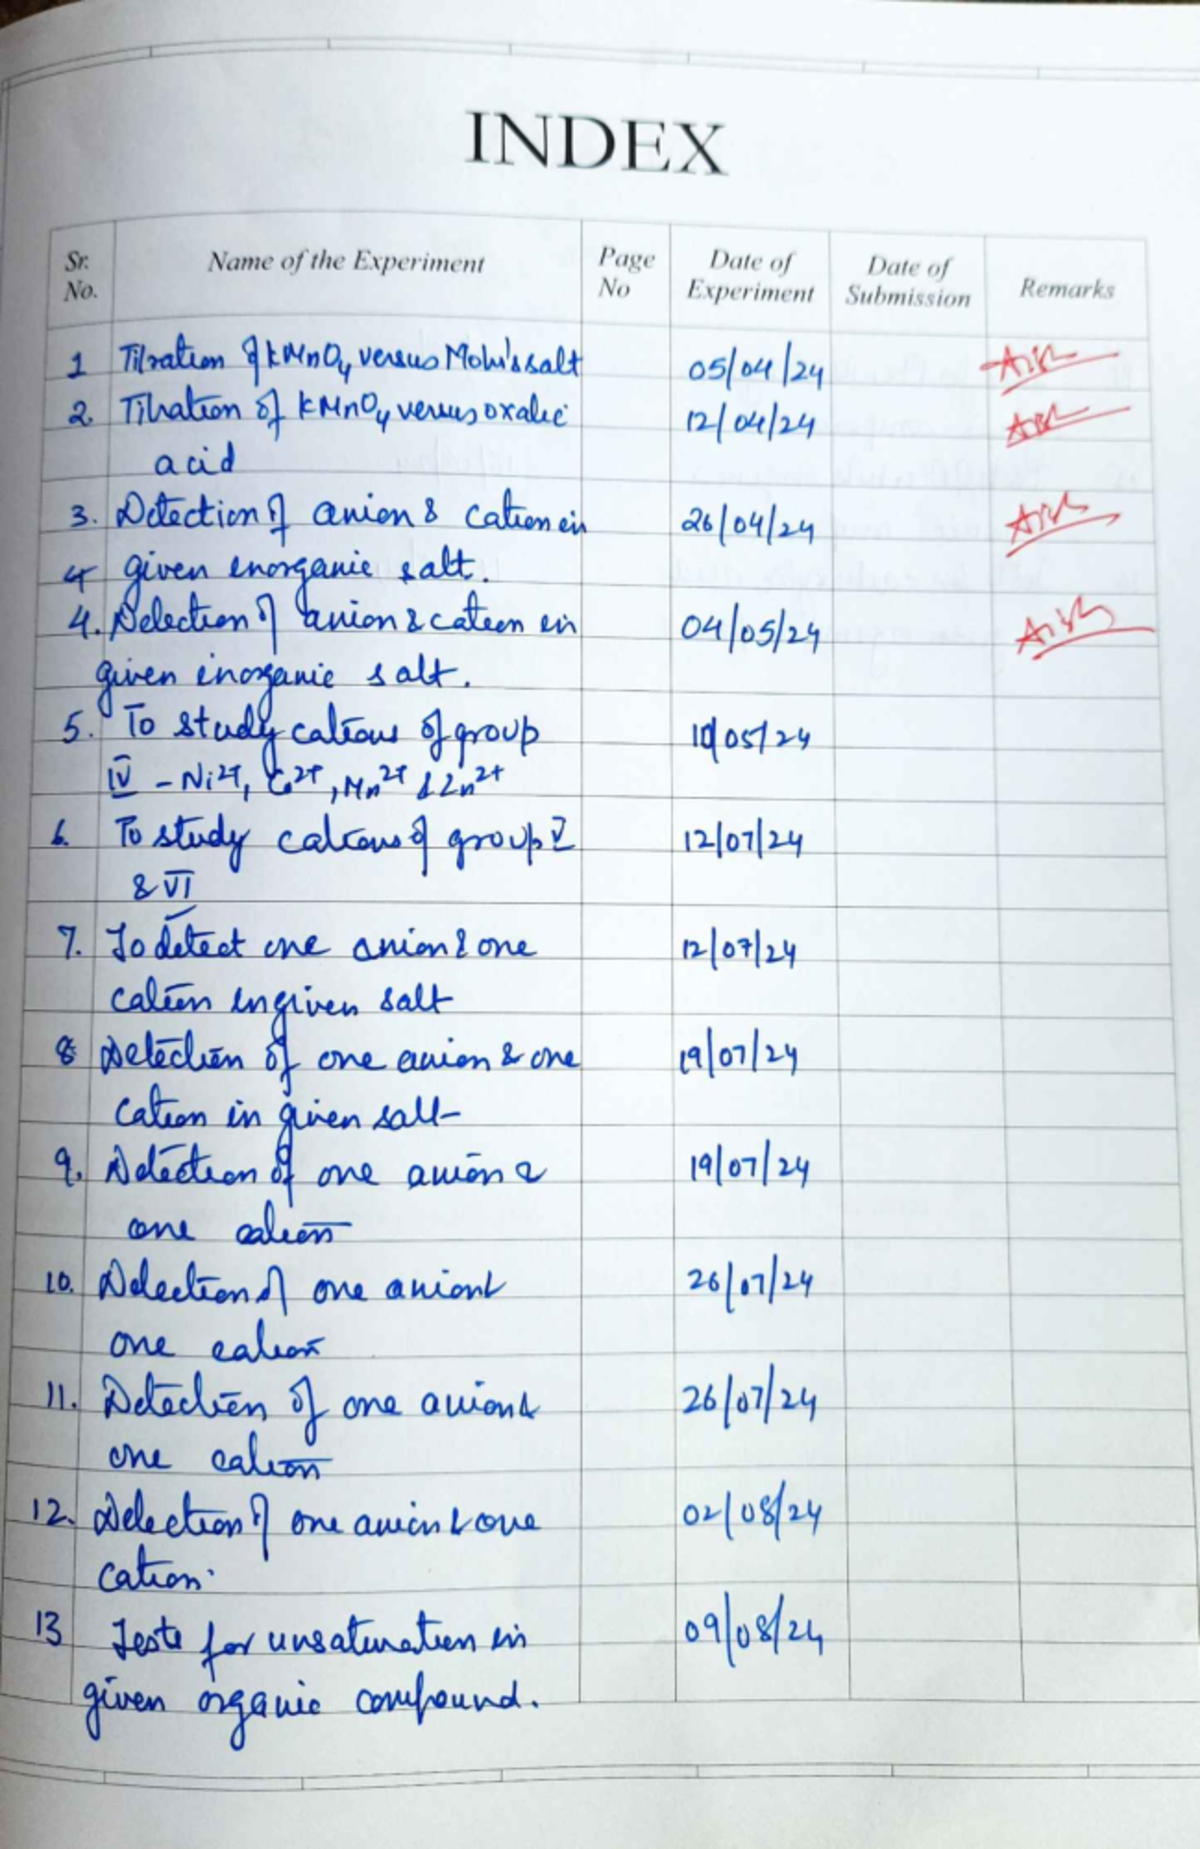 INDEX
Sr. No. Name of the Experiment Page No Date of Experiment Date of Submission Remarks
1 Titration of KMnO4 versus Mohr's salt 05/04/24
2. Titration of KMnO4 versus oxalic 12/04/24
acid
3. Detection of anion & cation in 26/04/24
given inorganic salt.
4. Detection of anion & cation in 04/05/24
given inorganic salt.
5. To study cations of group 10/05/24
IV - Ni2+, Co2+, Mn2+ & Zn2+
6. To study cations of group V 12/07/24
& VI
7. To detect one anion & one 12/07/24
cation in given salt
8 Detection of one anion & one 19/07/24
cation in given salt
9. Detection of one anion & 19/07/24
one cation
10. Detection of one anion & 26/07/24
one cation
11. Detection of one anion & 26/07/24
one cation
12. Detection of one anion & one 02/08/24
cation.
13 Tests for unsaturation in 09/08/24
given organic compound.